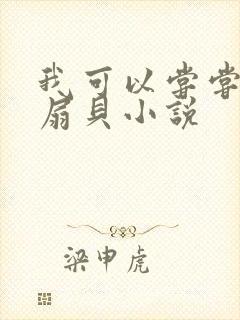 我可以嘗嘗
扇貝小説
梁申虎